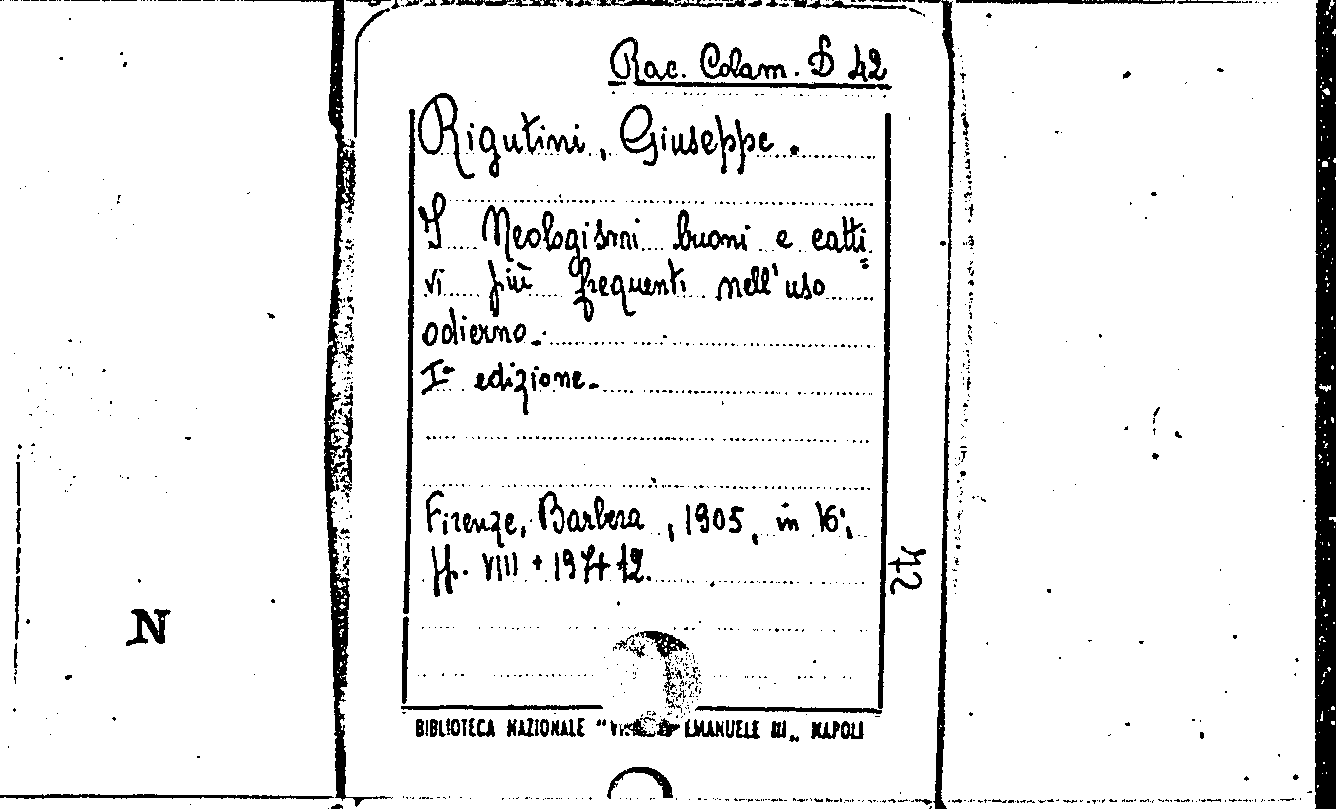 Rac. Colam. D 42
Rigutini, Giuseppe.
I Neologismi buoni e catti=
vi più frequenti nell'uso
odierno.
Iª edizione.
Firenze, Barbera, 1905, in 16°,
pp. VIII + 197 + 12.
42
N
BIBLIOTECA NAZIONALE " EMANUELE III„ NAPOLI